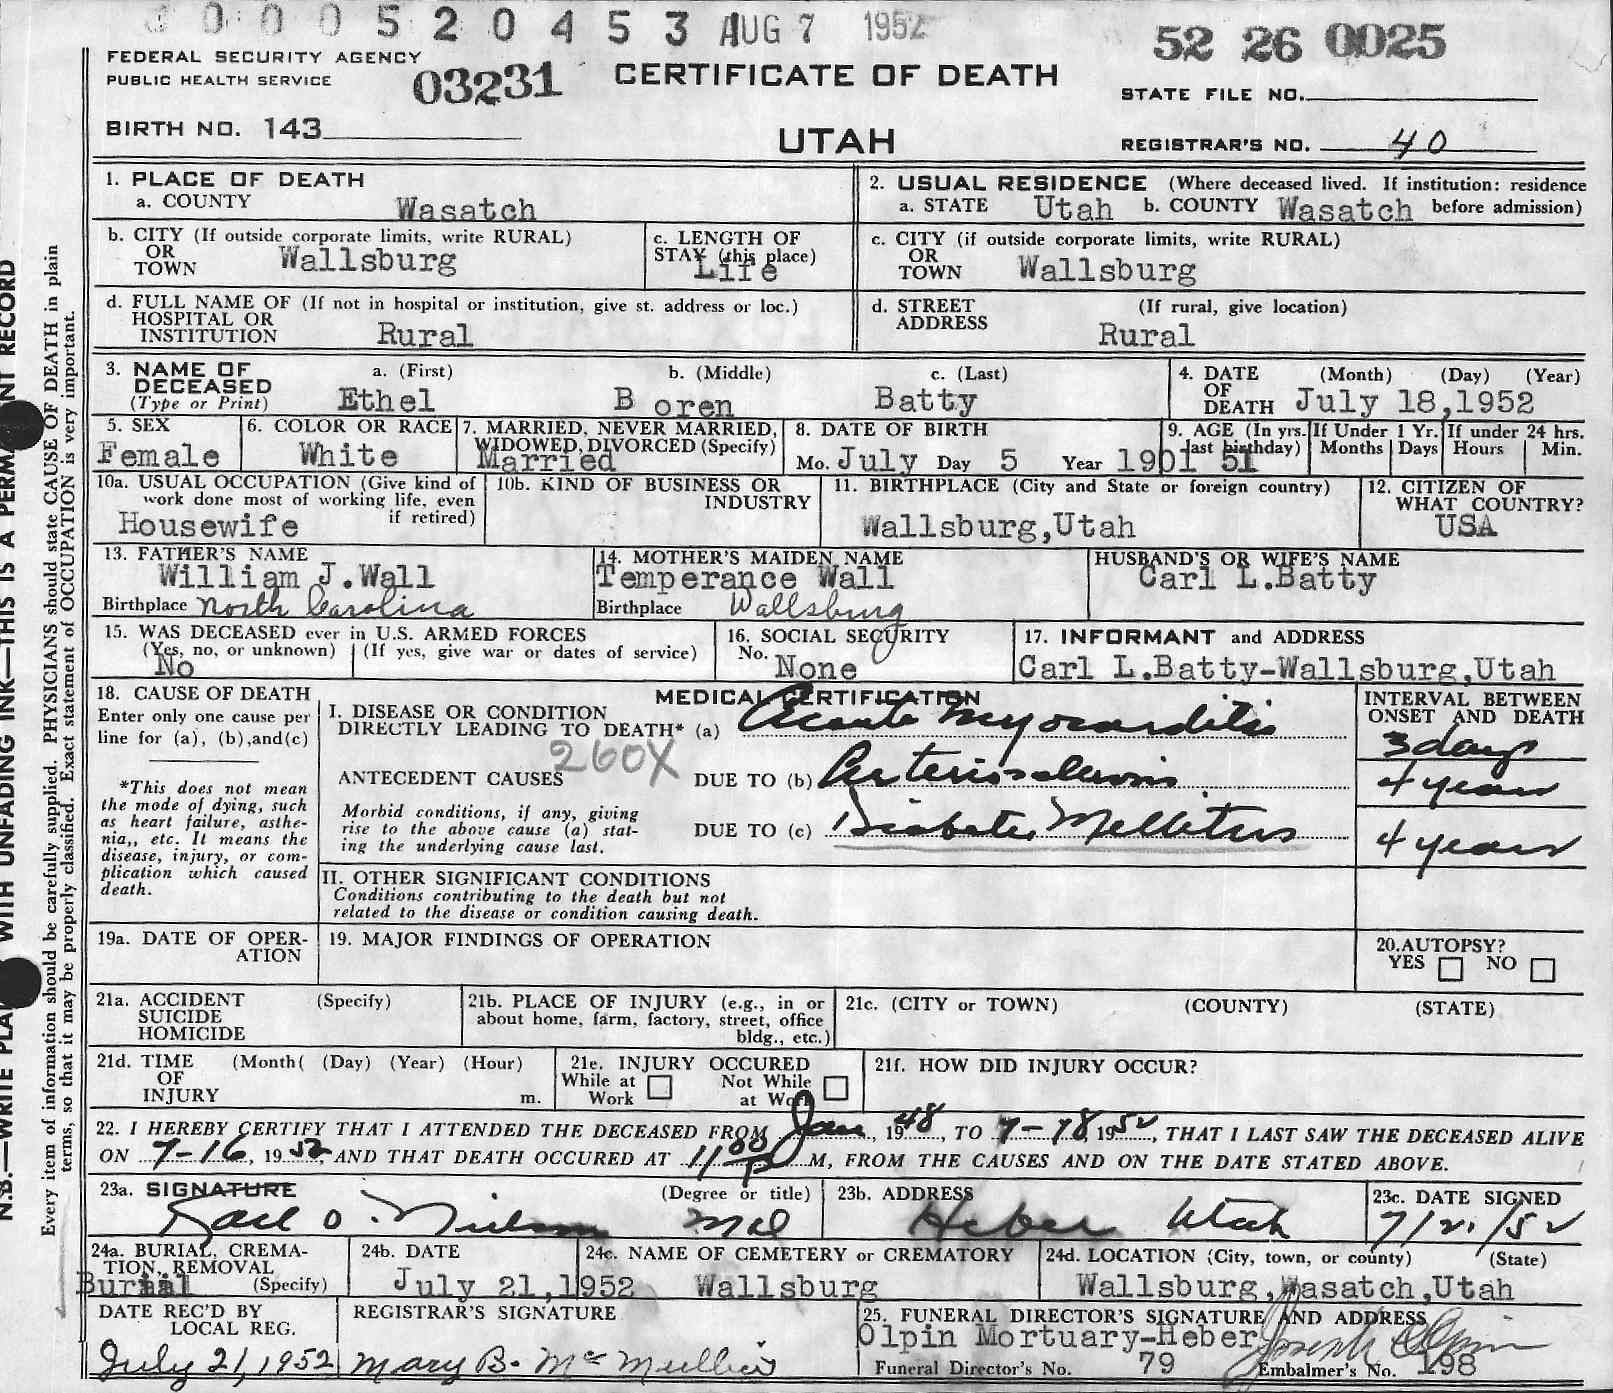 0 0 0 5 2 0 4 5 3 AUG 7 1952
52 26 0025
FEDERAL SECURITY AGENCY
PUBLIC HEALTH SERVICE
03231
CERTIFICATE OF DEATH
STATE FILE NO.
BIRTH NO. 143
UTAH
REGISTRAR'S NO. 40
N.B.—WRITE PLA WITH UNFADING INK—THIS IS A PERMA NT RECORD
Every item of information should be carefully supplied. PHYSICIANS should state CAUSE OF DEATH in plain
terms, so that it may be properly classified. Exact statement of OCCUPATION is very important.
1. PLACE OF DEATH
a. COUNTY Wasatch
2. USUAL RESIDENCE (Where deceased lived. If institution: residence
a. STATE Utah b. COUNTY Wasatch before admission)
b. CITY (If outside corporate limits, write RURAL)
OR
TOWN Wallsburg
c. LENGTH OF
STAY (this place)
Life
c. CITY (if outside corporate limits, write RURAL)
OR
TOWN Wallsburg
d. FULL NAME OF (If not in hospital or institution, give st. address or loc.)
HOSPITAL OR
INSTITUTION Rural
d. STREET (If rural, give location)
ADDRESS
Rural
3. NAME OF
DECEASED
(Type or Print)
a. (First) b. (Middle) c. (Last)
Ethel B oren Batty
4. DATE (Month) (Day) (Year)
OF
DEATH July 18,1952
5. SEX
Female
6. COLOR OR RACE
White
7. MARRIED, NEVER MARRIED,
WIDOWED, DIVORCED (Specify)
Married
8. DATE OF BIRTH
Mo. July Day 5 Year 1901
9. AGE (In yrs.
last birthday)
51
If Under 1 Yr.
Months Days
If under 24 hrs.
Hours Min.
10a. USUAL OCCUPATION (Give kind of
work done most of working life, even
if retired)
Housewife
10b. KIND OF BUSINESS OR
INDUSTRY
11. BIRTHPLACE (City and State or foreign country)
Wallsburg,Utah
12. CITIZEN OF
WHAT COUNTRY?
USA
13. FATHER'S NAME
William J.Wall
Birthplace North Carolina
14. MOTHER'S MAIDEN NAME
Temperance Wall
Birthplace Wallsburg
HUSBAND'S OR WIFE'S NAME
Carl L.Batty
15. WAS DECEASED ever in U.S. ARMED FORCES
(Yes, no, or unknown) (If yes, give war or dates of service)
No
16. SOCIAL SECURITY
No. None
17. INFORMANT and ADDRESS
Carl L.Batty-Wallsburg,Utah
18. CAUSE OF DEATH
Enter only one cause per
line for (a), (b),and(c)
*This does not mean
the mode of dying, such
as heart failure, asthe-
nia,, etc. It means the
disease, injury, or com-
plication which caused
death.
MEDICAL CERTIFICATION
I. DISEASE OR CONDITION
DIRECTLY LEADING TO DEATH* (a) Acute Myocarditis
260X
ANTECEDENT CAUSES DUE TO (b) Arteriosclerosis
Morbid conditions, if any, giving
rise to the above cause (a) stat-
ing the underlying cause last.
DUE TO (c) Diabetes Mellitus
INTERVAL BETWEEN
ONSET AND DEATH
3 days
4 years
4 years
II. OTHER SIGNIFICANT CONDITIONS
Conditions contributing to the death but not
related to the disease or condition causing death.
19a. DATE OF OPER-
ATION
19. MAJOR FINDINGS OF OPERATION
20.AUTOPSY?
YES NO
21a. ACCIDENT (Specify)
SUICIDE
HOMICIDE
21b. PLACE OF INJURY (e.g., in or
about home, farm, factory, street, office
bldg., etc.)
21c. (CITY or TOWN) (COUNTY) (STATE)
21d. TIME (Month( (Day) (Year) (Hour)
OF
INJURY m.
21e. INJURY OCCURED
While at Not While
Work at Work
21f. HOW DID INJURY OCCUR?
22. I HEREBY CERTIFY THAT I ATTENDED THE DECEASED FROM Jan , 1948, TO 7-18, 1952, THAT I LAST SAW THE DECEASED ALIVE
ON 7-16, 1952, AND THAT DEATH OCCURED AT 11 00 P M, FROM THE CAUSES AND ON THE DATE STATED ABOVE.
23a. SIGNATURE (Degree or title)
Karl O. Nielson MD
23b. ADDRESS
Heber Utah
23c. DATE SIGNED
7/21/52
24a. BURIAL, CREMA-
TION, REMOVAL
Burial (Specify)
24b. DATE
July 21,1952
24c. NAME OF CEMETERY or CREMATORY
Wallsburg
24d. LOCATION (City, town, or county) (State)
Wallsburg,Wasatch,Utah
DATE REC'D BY
LOCAL REG.
July 21, 1952
REGISTRAR'S SIGNATURE
Mary B. McMullin
25. FUNERAL DIRECTOR'S SIGNATURE AND ADDRESS
Olpin Mortuary-Heber Joseph Olpin
Funeral Director's No. 79 Embalmer's No. 198